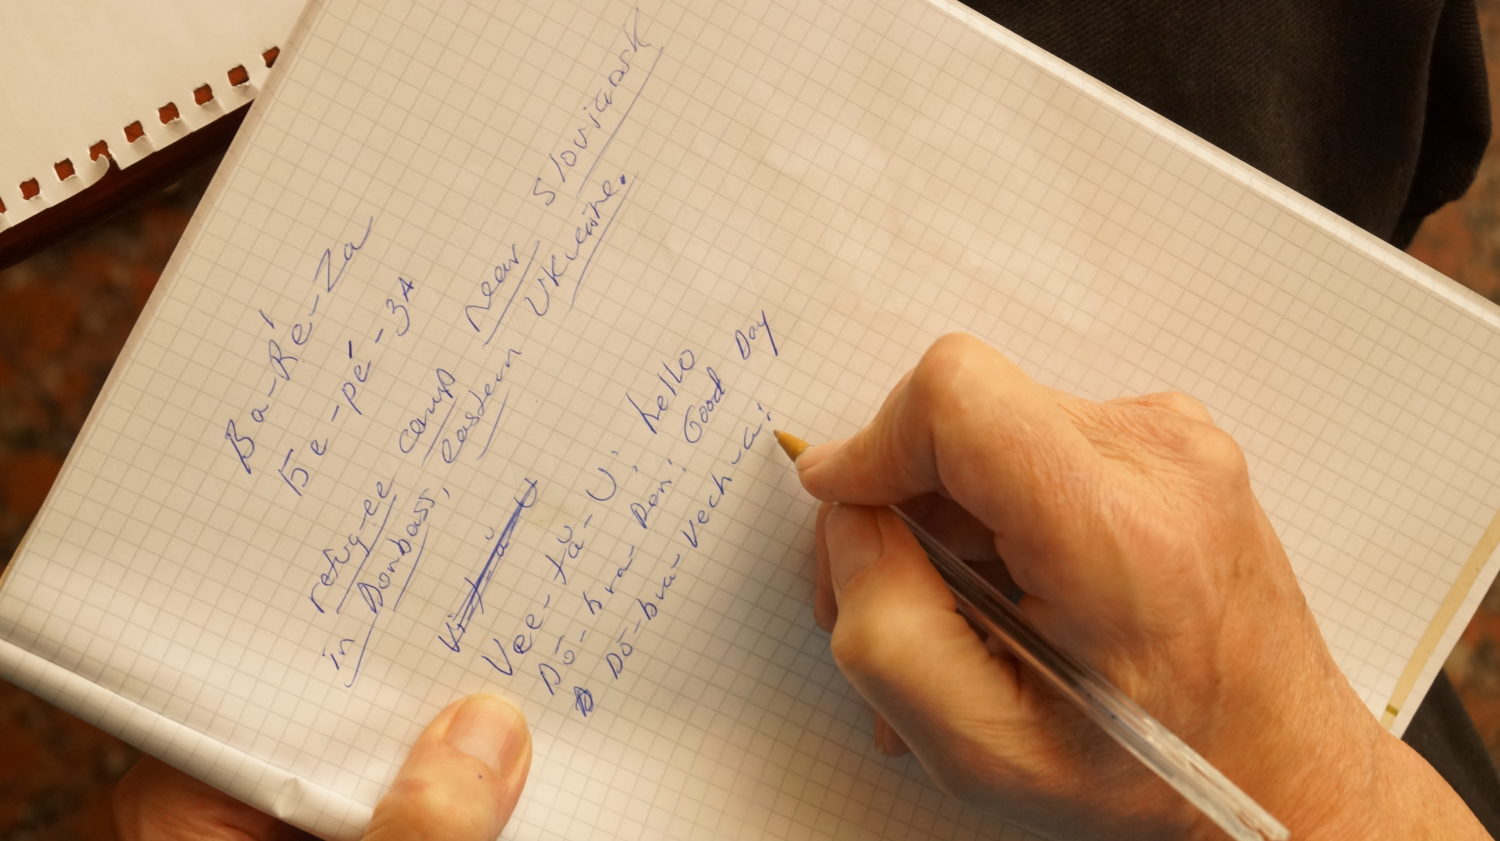 Ba-Ré-Za
Бе-ре́-за
refug-ee camp near Sloviansk
in Donbass, eastern Ukraine.
Vee-tă-U; hello
Dō-bra-Den! Good Day
Dō-bra-Vech-a!